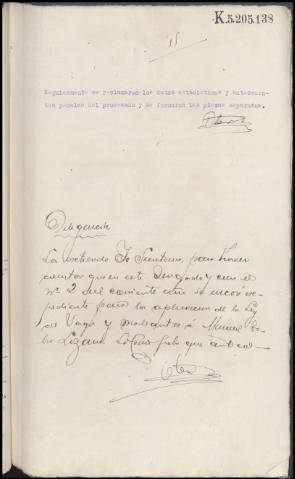 K.5.205.138
15
Seguidamente se reclamaron los datos estadisticos y anteceden-
tes penales del procesado y se formaron las piezas separadas.
Diligencia
La extiendo Yo Secretario, para hacer
constar que en este Juzgado y con el
nº 2 del corriente año se incoó ex-
pediente para la aplicacion de la Ley
de Vagos y maleantes á Manuel
Lozano que